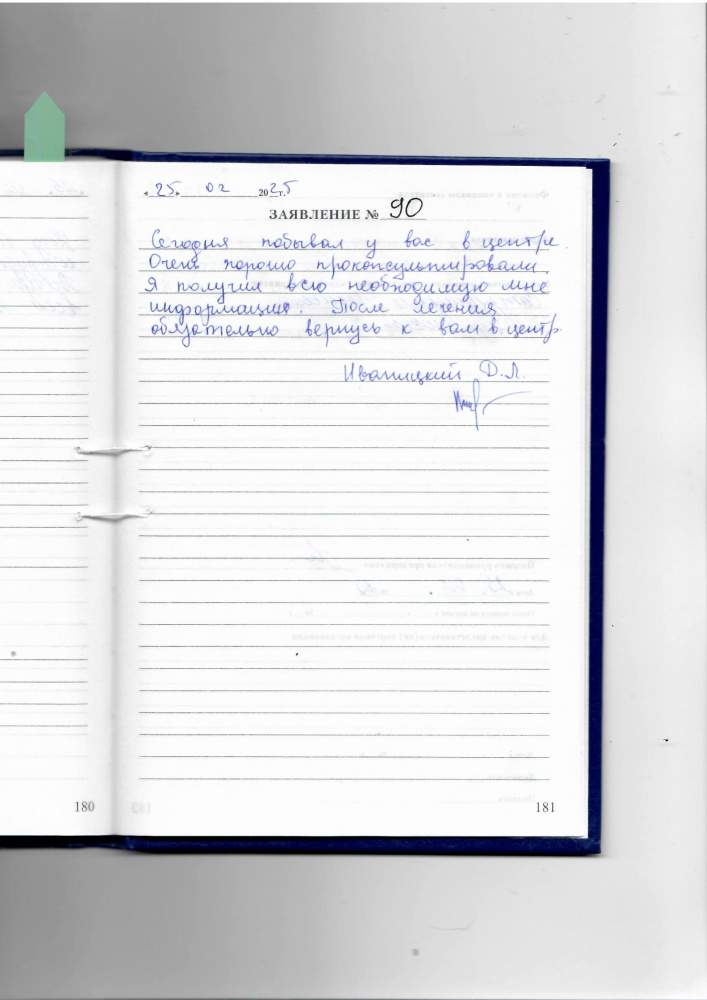 « 25 » 02 2025 г.
ЗАЯВЛЕНИЕ № 90
Сегодня побывал у вас в центре.
Очень хорошо проконсультировали.
Я получил всю необходимую мне
информацию. После лечения
обязательно вернусь к вам в центр.
Иваницкий Д.Л.
180
181